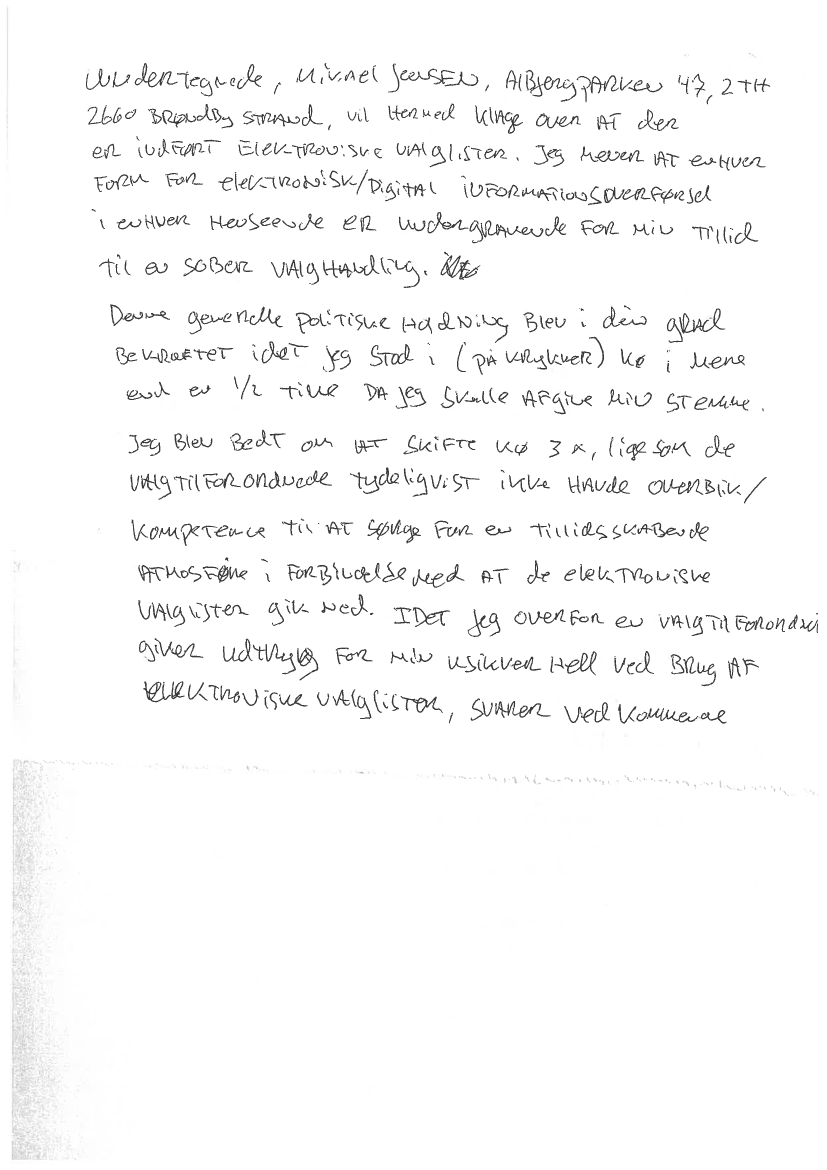 Undertegnede, Mikael Jensen, Albjergparken 47, 2 TH
2660 Brøndby Strand, vil hermed klage over at der
er indført elektroniske valglister. Jeg mener at enhver
form for elektronisk/digital informationsoverførsel
i enhver henseende er undergravende for min tillid
til en sober valghandling.
Denne generelle politiske holdning blev i den grad
bekræftet idet jeg stod i (på krykker) kø i mere
end en 1/2 time da jeg skulle afgive min stemme.
Jeg blev bedt om at skifte kø 3 x, ligesom de
valgtilforordnede tydeligvist ikke havde overblik/
kompetence til at sørge for en tillidsskabende
atmosføre i forbindelse med at de elektroniske
valglister gik ned. Idet jeg overfor en
giver udtryk for min usikkerhed ved brug af
elektroniske valglister, svarer vedkommende